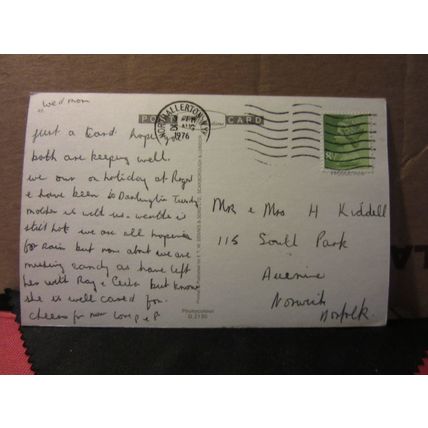 Wed morn
Just a Card hope
both are keeping well.
we are on holiday at
& have been to Darlington
mother is with us. weather is
still hot we are all hoping
for rain but not about we are
missing Sandy as have left
her with Ray & Celia but know
she is well cared for.
cheerio for now love
POST CARD
NORTHALLERTON
25 AUG
1976
8½
Mr & Mrs H Kiddell
115 South Park
Avenue
Norwich
Norfolk.
Photocolour